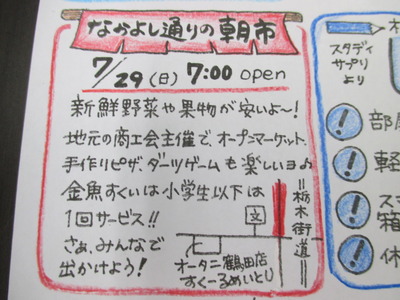 なかよし通りの朝市
7/29(日) 7:00 open
新鮮野菜や果物が安いよ~!
地元の商工会主催で、オープンマーケット。
手作りピザ、ダーツゲームも楽しいヨ♪
金魚すくいは小学生以下は
1回サービス!!
さぁ、みんなで
出かけよう!
文
栃木街道
オータニ鶴田店
すくーるめいとし
スタディ
サプリ
より
部屋
軽
スマ
箱
休